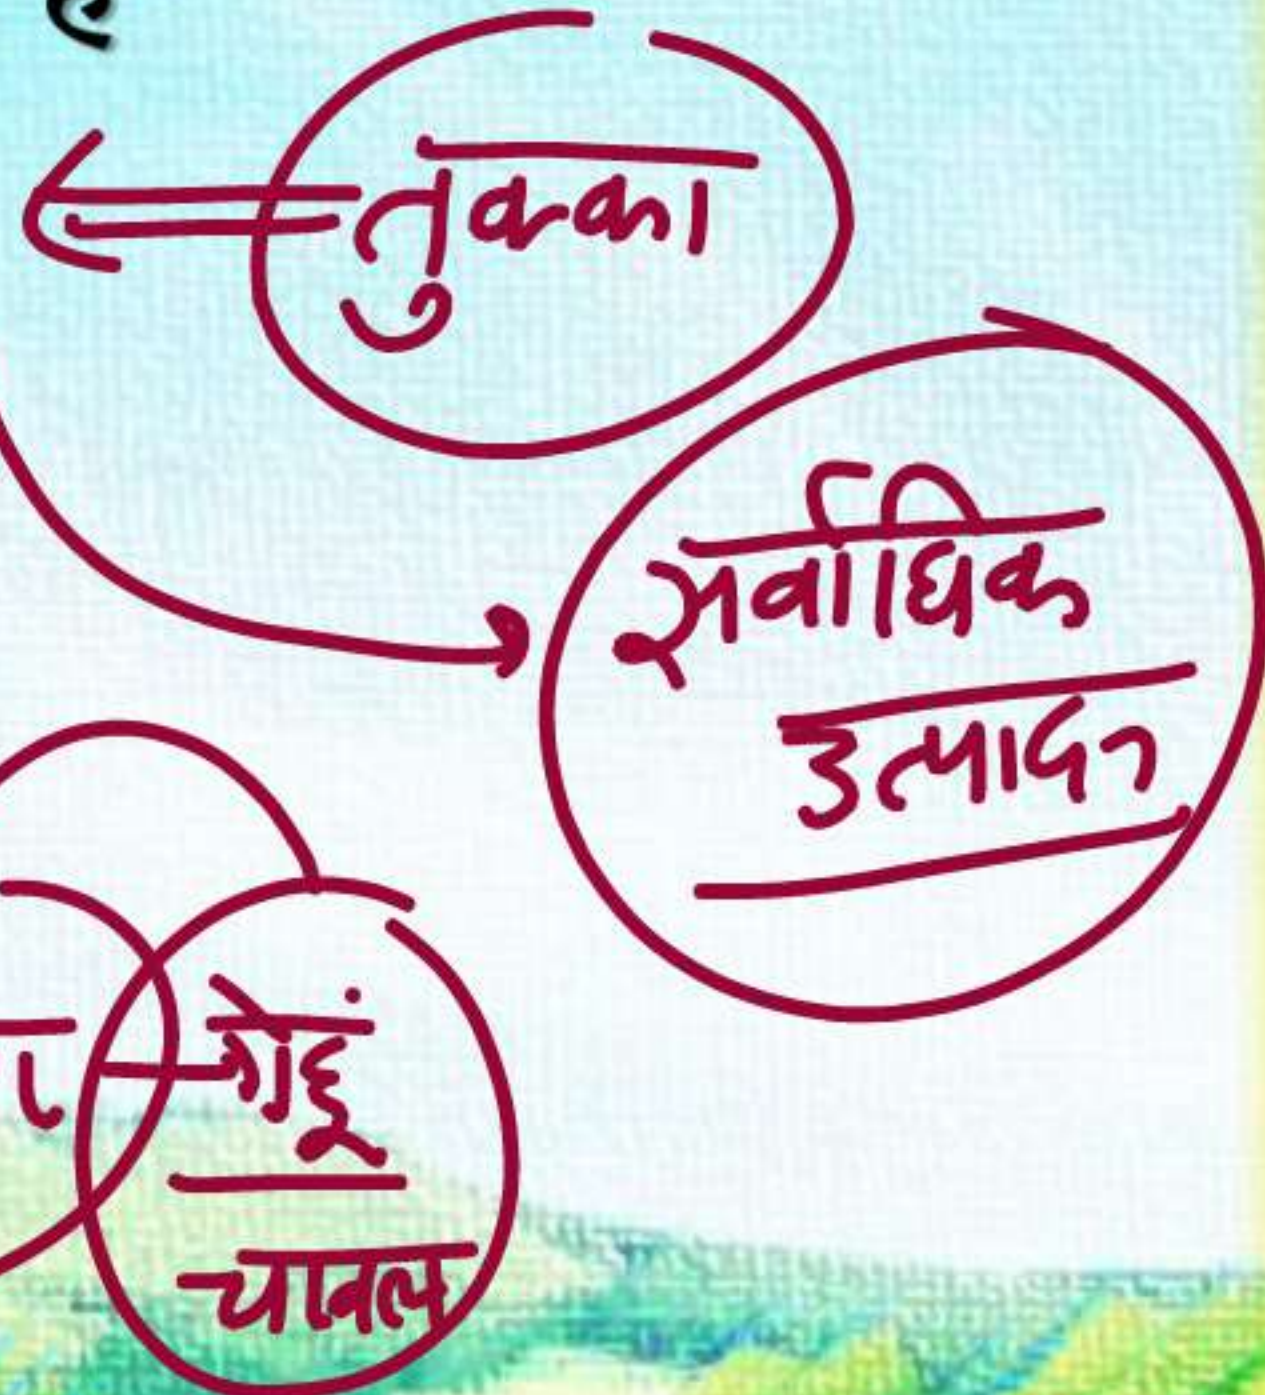 है
तुक्का
सर्वाधिक
उत्पादन
गेहूं
चावल